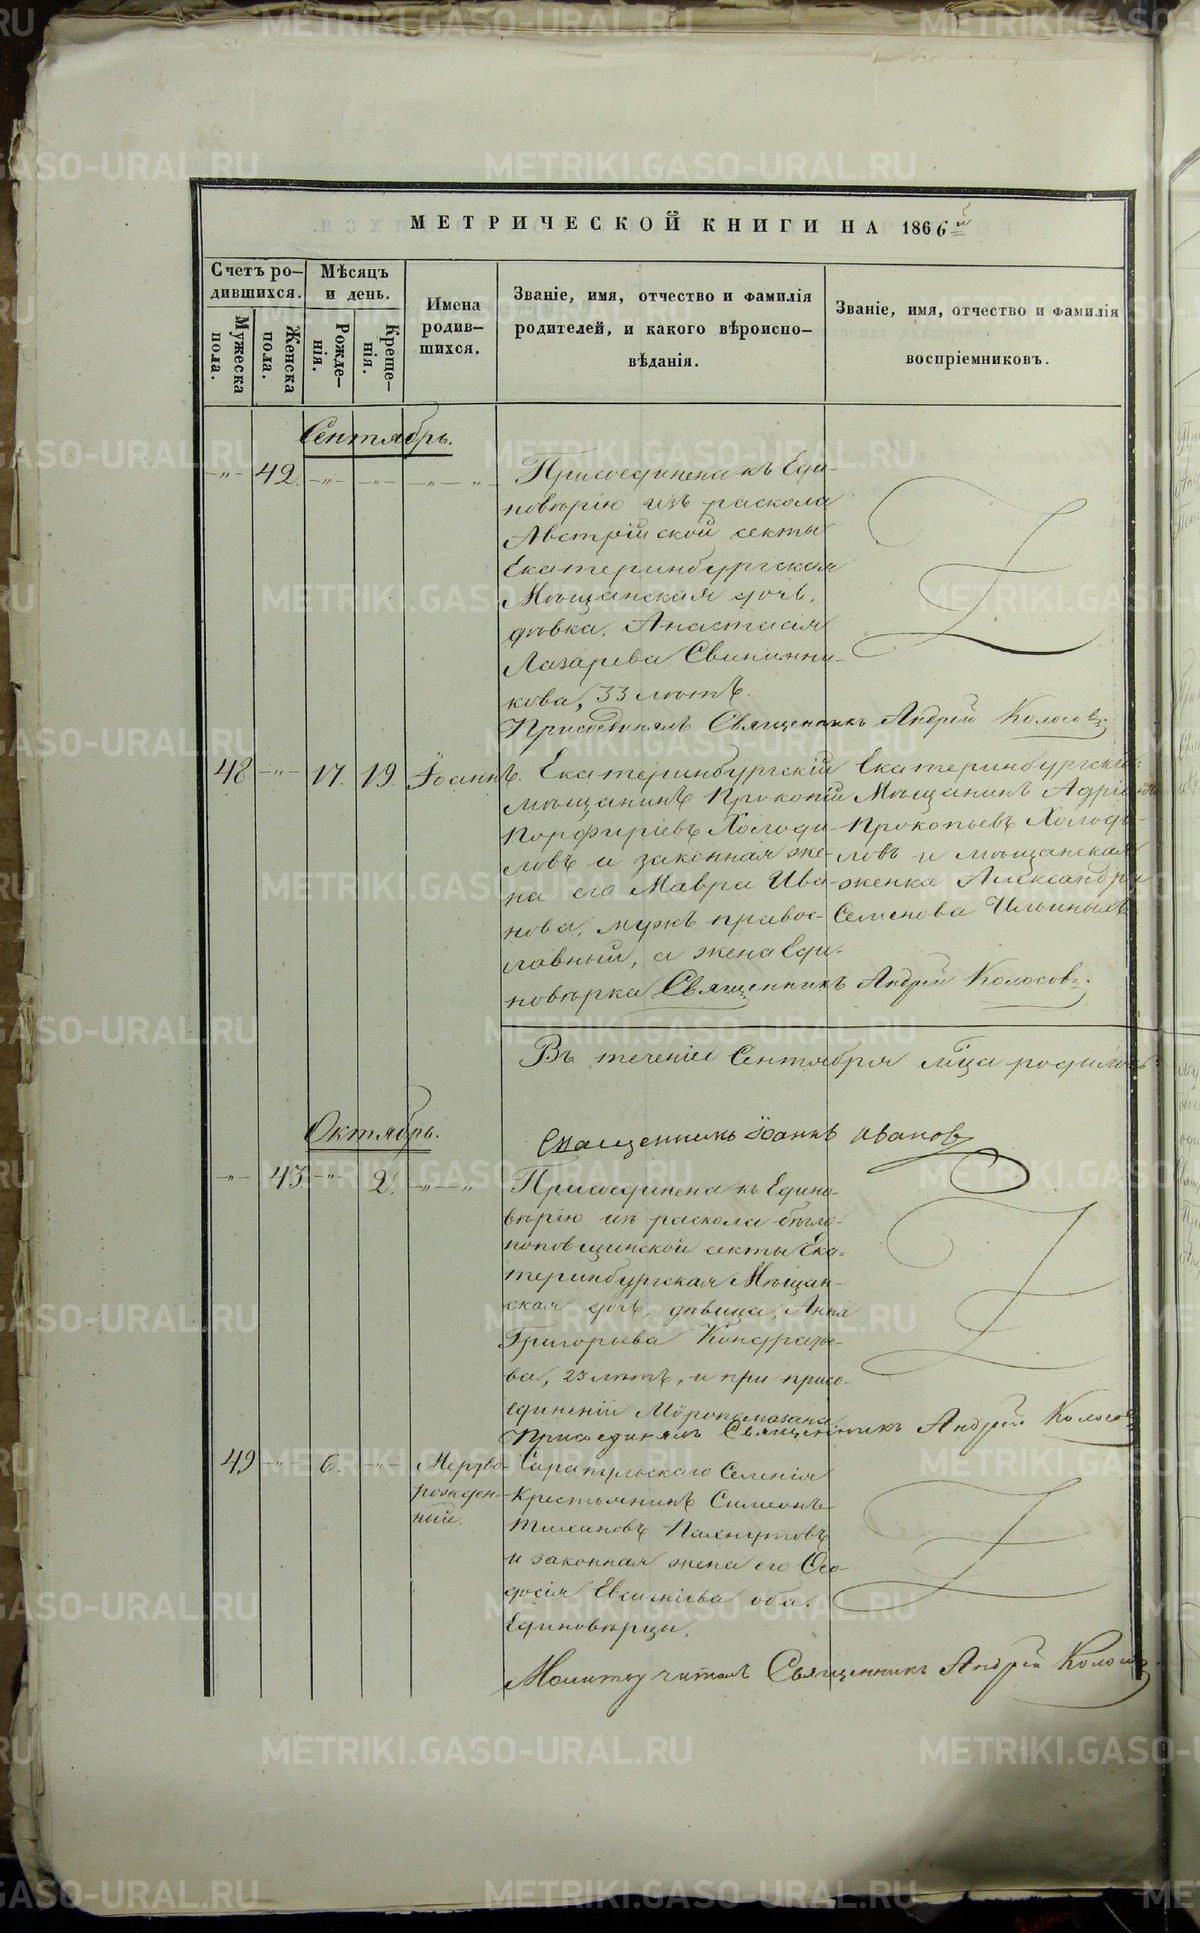 МЕТРИЧЕСКОЙ КНИГИ НА 1866й
Счетъ ро-
дившихся.
Мѣсяцъ
и день.
Имена
родив-
шихся.
Званіе, имя, отчество и фамилія
родителей, и какого вѣроиспо-
вѣданія.
Званіе, имя, отчество и фамилія
воспріемниковъ.
Мужеска
пола.
Женска
пола.
Рожде-
нія.
Креще-
нія.
Сентябрь.
42.
Присоединена къ Еди-
новѣрію изъ раскола
Австрійской секты
Екатеринбургская
Мѣщанская дочь,
дѣвка, Анастасія
Лазарева
кова, 33 лѣтъ.
Присоединялъ Священникъ Андрей Колосовъ.
48. 17. 19. Іоаннъ.
Екатеринбургскій
мѣщанинъ Прокопій
Порфиріевъ Холоди-
ловъ и законная же-
на его Мавра Ива-
нова, мужъ правос-
лавный, а жена Еди-
новѣрка
Екатеринбургскій
Мѣщанинъ Адріанъ
Прокопьевъ Холоди-
ловъ и мѣщанская
женка Александра
Семенова Ильиныхъ
Священникъ Андрей Колосовъ.
Въ теченіе Сентября мѣца родилось
Священникъ Іоаннъ Ивановъ
Октябрь.
43. 2.
Присоединена къ Едино-
вѣрію изъ раскола бѣгло-
поповщинской секты Ека-
теринбургская Мѣщан-
ская дочь, дѣвица, Анна
Григорьева Кондратье-
ва, 23 лѣтъ, и при присо-
единеніи Мѵропомазана
Присоединялъ Священникъ Андрей Колосовъ
49 6. Мертво-
рожден-
ный.
Сарапульскаго Селенія
Крестьянинъ Симеонъ
Тихановъ Пахнутовъ
и законная жена его Ѳео-
досія Евсигніева оба
Единовѣрцы.
Молитву читалъ Священникъ Андрей Колосовъ
METRIKI.GASO-URAL.RU